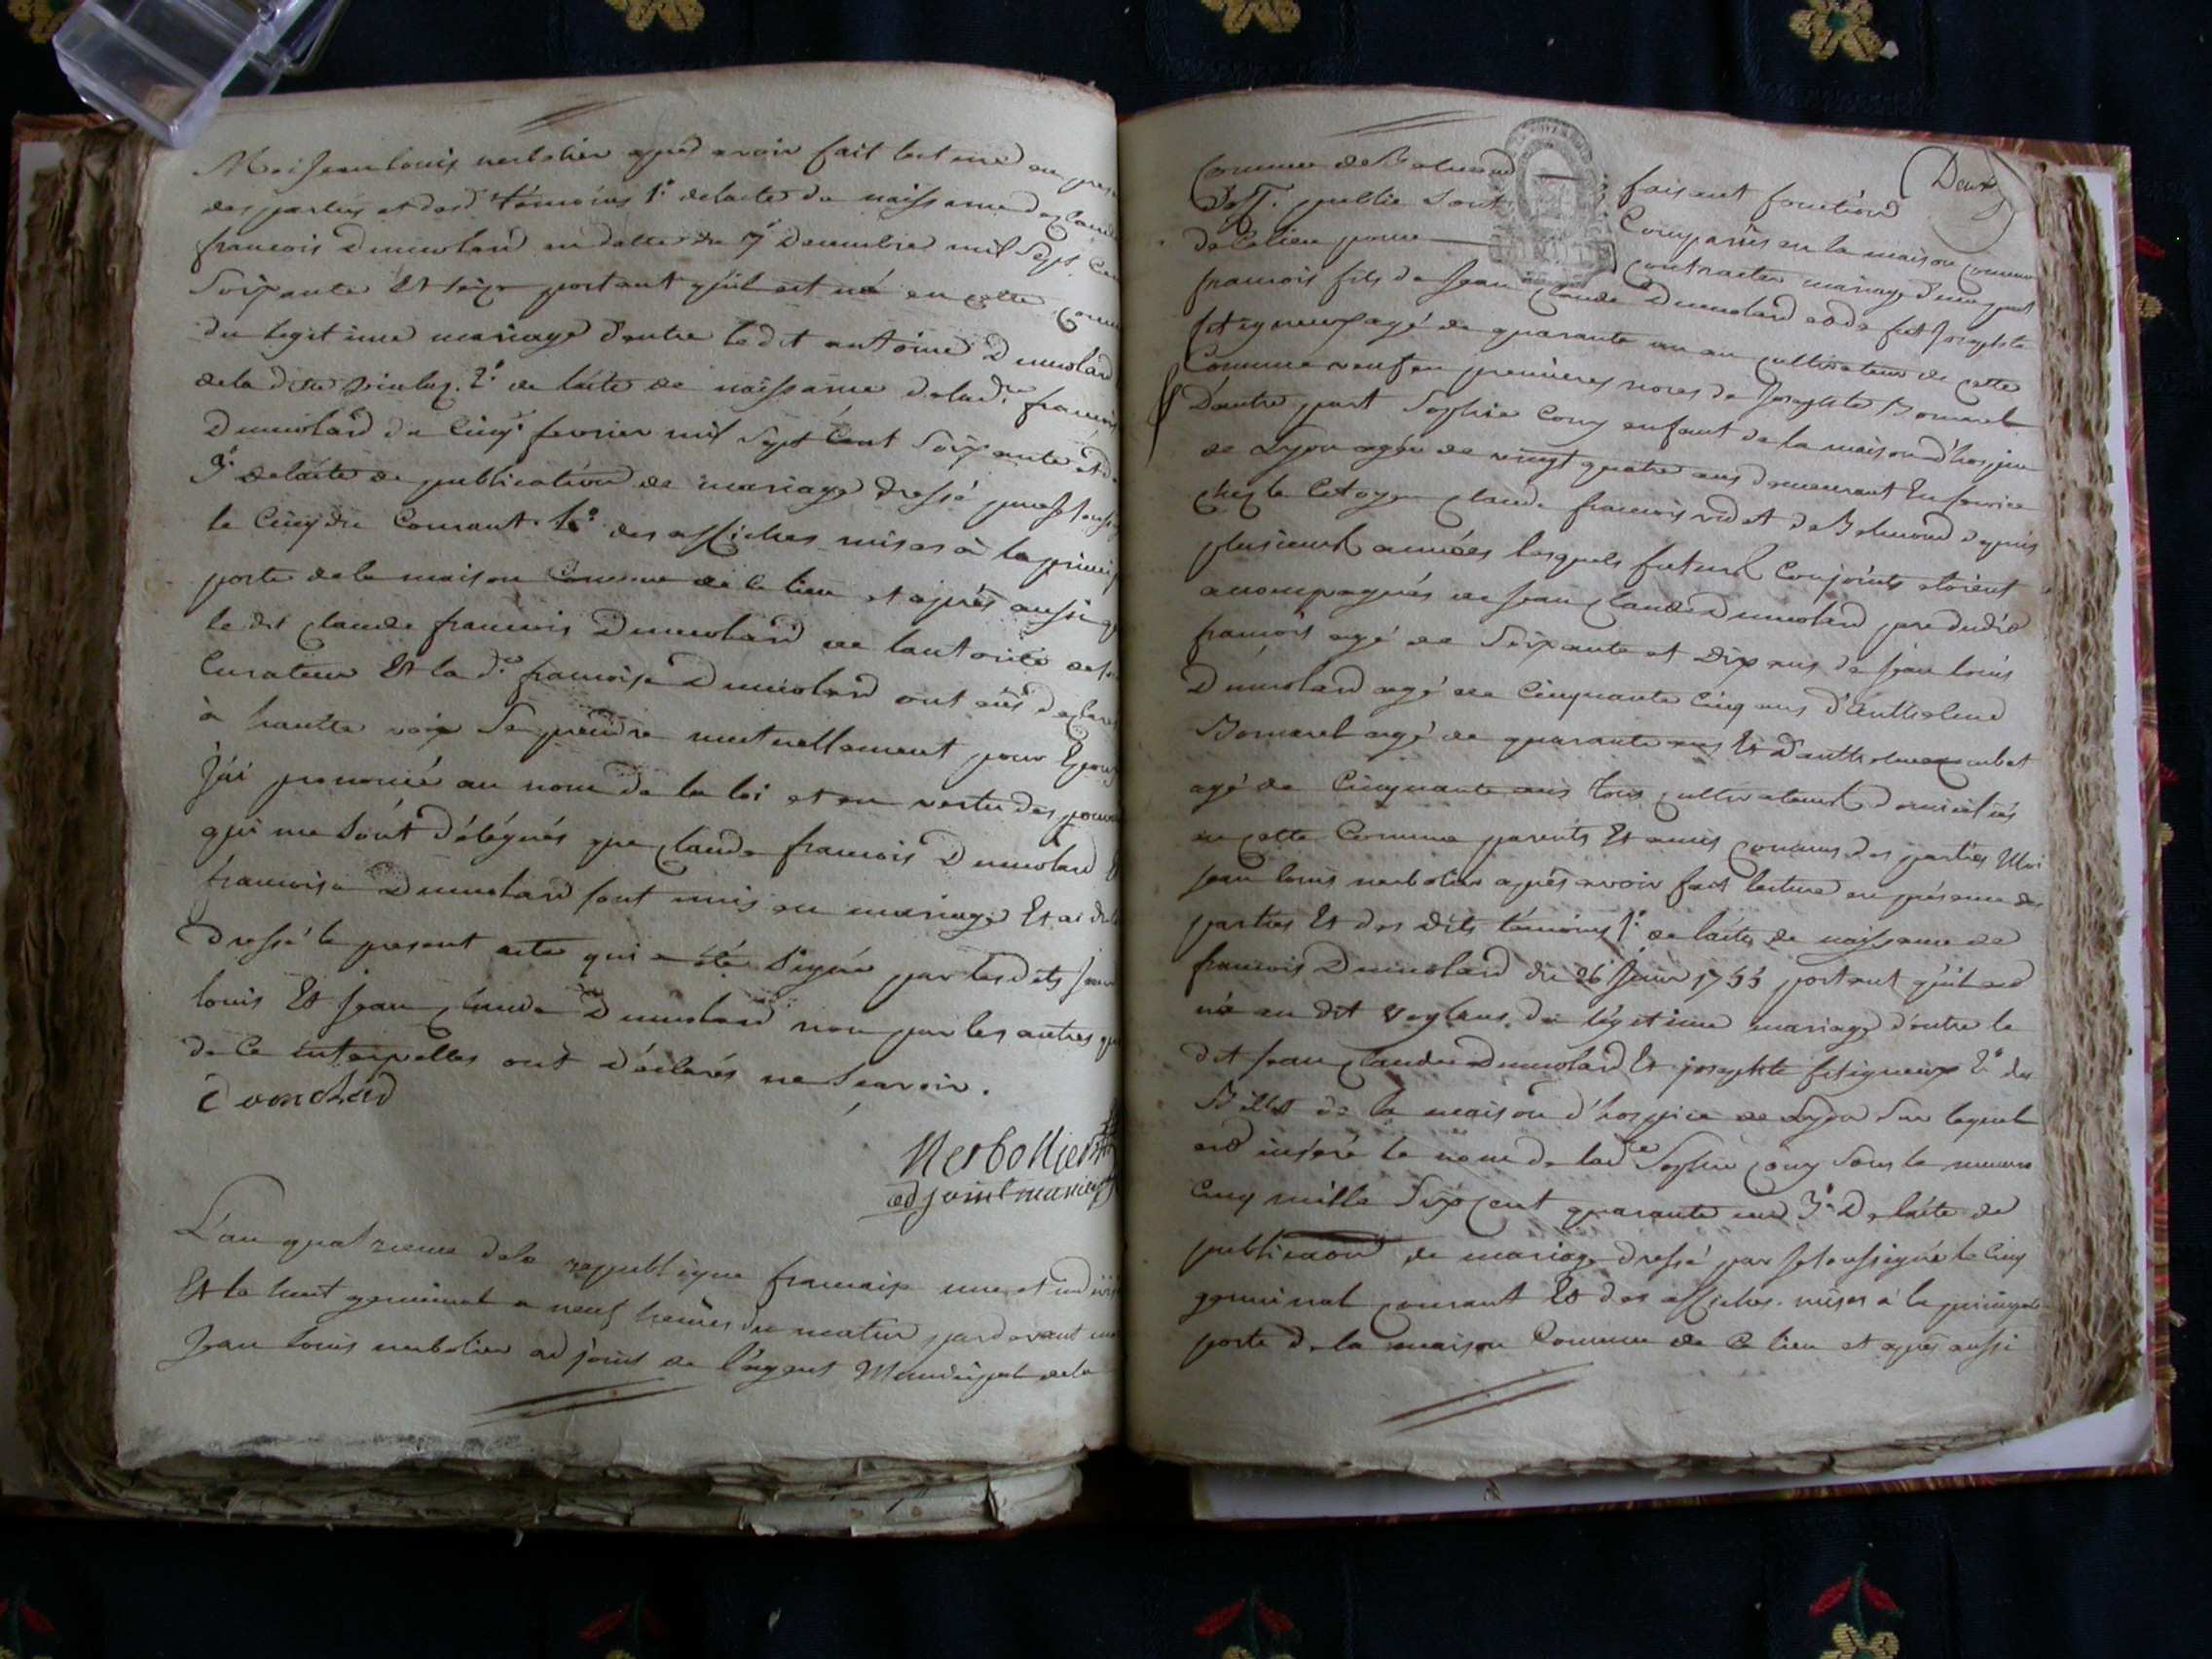 Moi Jean louis nerbolier apres avoir fait lecture en pres
des parties et desd. témoins 1° de l'acte de naissance de claude
francois Dumolard en datte du 7e Decembre mil Sept Cen
Soixante Et seize portant qu'il est né en cette Comm
du legitime mariage d'entre le dit antoine Dumolard
de la dite 2° de l'acte de naissance de lad.e francoise
Dumolard du Cinq fevrier mil Sept Cent Soixante et d
3° de l'acte de publication de mariage dressé par
le Cinq du Courant 4° des affiches mises à la princip
porte de la maison Commune de ce lieu et après aussi q
le dit claude francois Dumolard de l'autorité de so
Curateur Et la d.e francoise Dumolard ont eus declar
à hautte voix Se prendre mutuellement pour Epoux
J'ai prononcé au nom de la loi et en vertu des pouv
qui me Sont délégués que claude francois Dumolard E
francoise Dumolard sont unis en mariage Et ai
Dressé le present acte qui a été Signé par les dits Jean
louis Et Jean claude Dumolard non par les autres qui
de Ce interpelles ont déclarés ne Scavoir.
Nerbollier
adjoint
L'an quatrieme de la reppublique francaise une et indivi
Et le huit germinal a neuf heures du matin pardevant moi
Jean louis nerbolier adjoint de l'agent Municipal de la
Deux
Commune de Belmond faisant fonction
d'off. public Sont Comparus en la maison Commune
de Ce lieu pour contracter mariage d'une part
francois fils de Jean Claude Dumolard et de fut Josephte
fitigneux agé de quarante un an cultivateur de cette
Commune veuf en premieres noces de Josephte Bomarel
D'autre part Sophie Cony enfant de la maison d'hospice
de Lyon agée de vingt quatre ans demeurant En service
chez le Citoyen claude francois de Belmond depuis
plusieurs années lesquels futurs Conjoints etoient
accompagnés de Jean claude Dumolard pere dudit
francois agé de Soixante et dix ans de Jean louis
Dumolard agé de Cinquante Cinq ans d'Anthelme
Bomarel agé de quarante ans Et D'anthelme
agé de Cinquante ans tous cultivateurs domiciliés
en cette Commune parents Et amis communs des parties Moi
Jean louis nerbolier après avoir fait lecture en présence des
parties Et des dits témoins 1° de l'acte de naissance de
francois Dumolard du 26 Juin 1755 portant qu'il est
né au dit du légitime mariage d'entre le
dit Jean claude Dumolard Et josephte fitigneux 2° du
Billet de la maison d'hospice de Lyon Sur lequel
est inséré le nom de lad.e Sophie Cony Sous le numero
Cinq mille Six Cent quarante un 3° De l'acte de
publicaon de mariage dressé par le soussigné le Cinq
germinal courant Et des affiches mises à la principale
porte de la maison Commune de Ce lieu et apres aussi